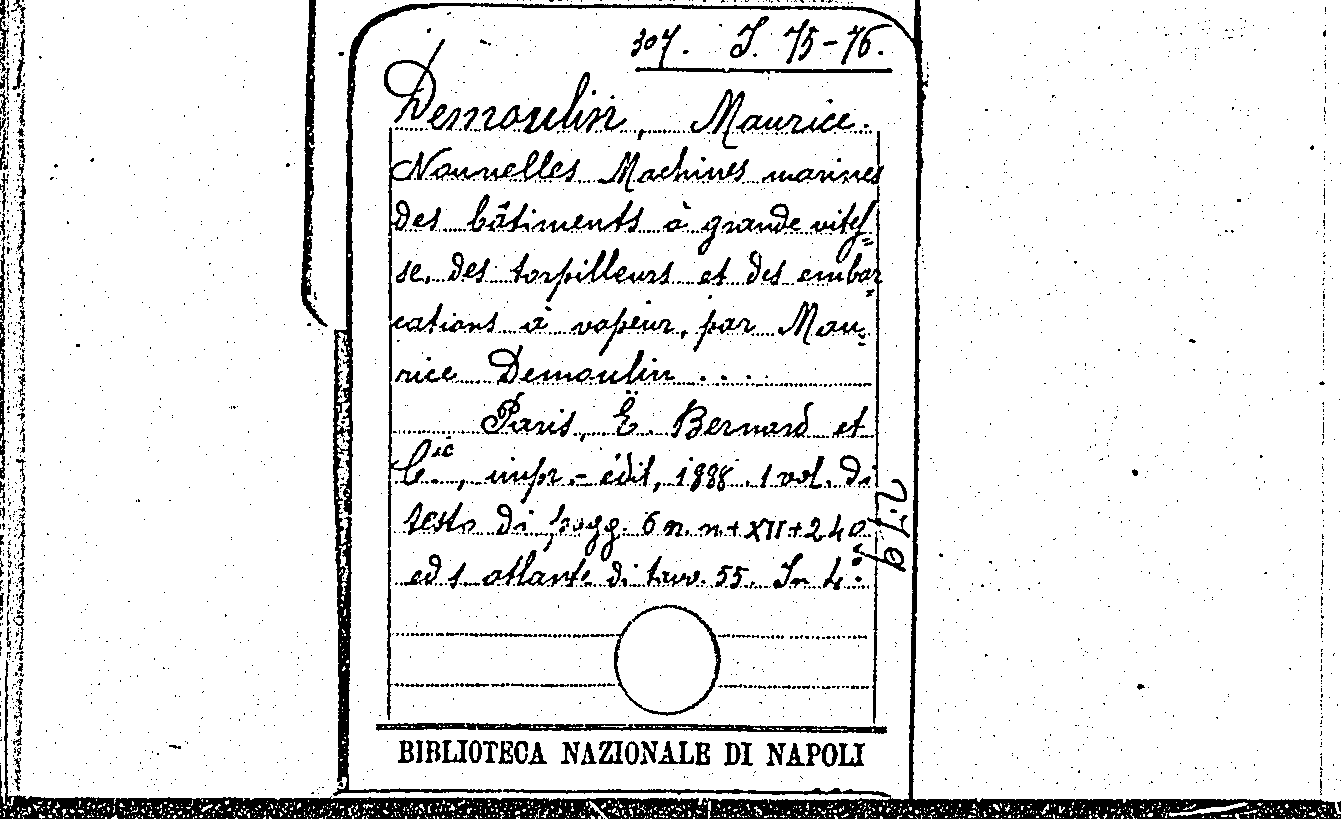 307. J. 75-76.
Demoulin, Maurice.
Nouvelles Machines marines
des bâtiments à grande vites=
se, des torpilleurs et des embar=
cations à vapeur, par Mau=
rice Demoulin ....
Paris, E. Bernard et
C.ie, impr.-édit, 1888. 1 vol. di
testo di pagg. 6 n. n+XII+240
ed 1 atlante di tavv. 55. In 4°.
BIBLIOTECA NAZIONALE DI NAPOLI